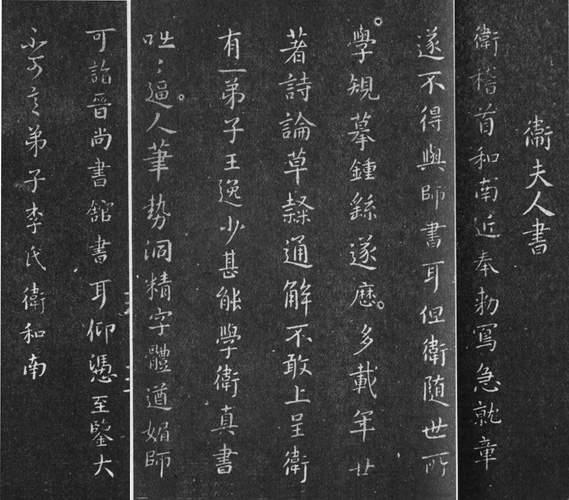 衛夫人書
衛稽首和南近奉勅寫急就章
遂不得與師書耳但衛隨世所
學規摹鍾繇遂歷多載年廿
著詩論草隸通解不敢上呈衛
有一弟子王逸少甚能學衛真書
咄〻逼人筆勢洞精字體遒媚師
可詣晉尚書舘書耳仰憑至鑒大
不可言弟子李氏衛和南